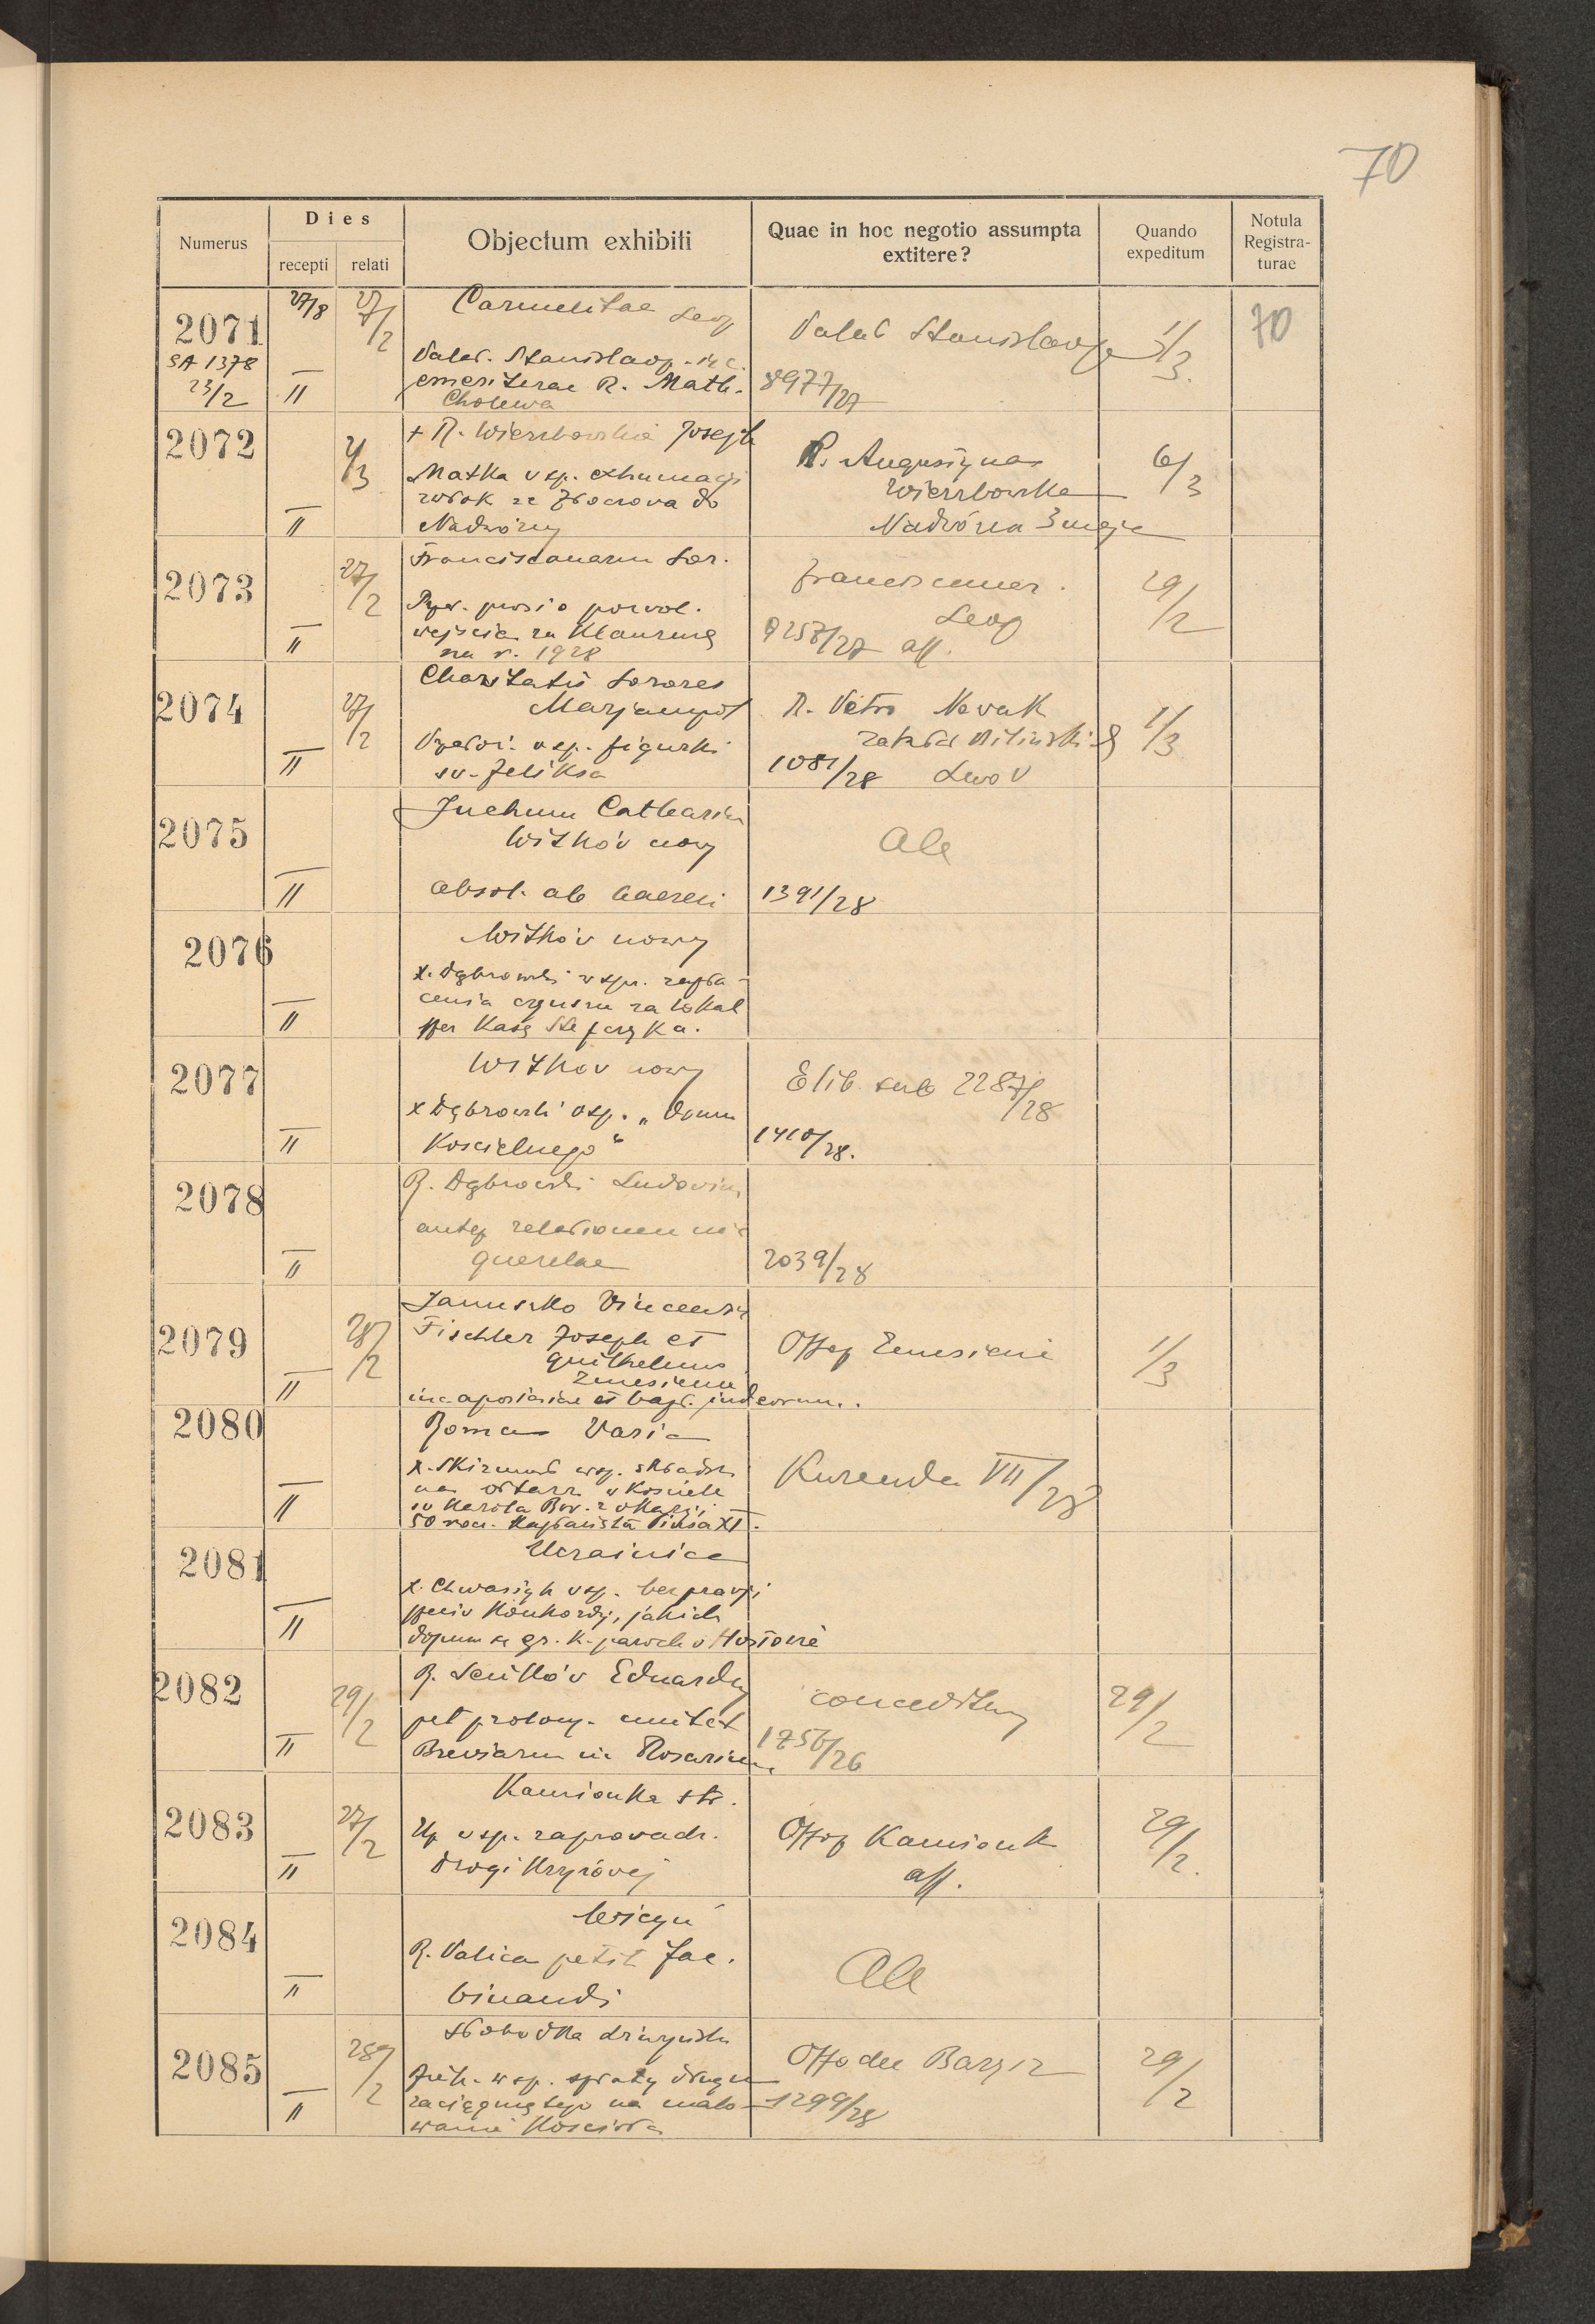 70
Numerus
Dies
recepti relati
Objectum exhibiti
Quae in hoc negotio assumpta extitere?
Quando expeditum
Notula Registra-turae
2071
SA 1378
23/2
27/8
II
27/2
Carmelitae Leop
Valet. Stanislaop. in c.
emeriturae R. Math.
Cholewa
Valet Stanislaop
8977/27
1/3.
70
2072
II
2/3
+ R. Wierzbowskie Joseph
Matka vsp. exhumacji
zwłok ze Zborova do
Nadwórny
P. Augustyna
Wierzbowska
Nadwórna 3 maja
6/3
2073
II
27/2
Franciscanarum Sor.
prosi o pozvol.
wejścia za Klauzurę
na r. 1928
Franciscanar.
Leop
9257/27 aff.
29/2
2074
II
27/2
Charitatis Sorores
Marjampol
vsp. figurki
sv. Feliksa
R. Petro Novak
zakład Bilinski
1081/28 Lwov
1/3
2075
II
Juchum Catharina
Witków nowy
absol. ab haeresi
Ale
1391/28
2076
II
Witków nowy
x. Dąbrowski w spr. zapła-
cenia czynszu za lokal
przez Kasę Stefczyka.
2077
II
Witkov nowy
x Dąbrowski vsp. „Domu
Koscielnego“
Elib. sub 2287/28
1410/28.
2078
II
R. Dąbrowski Ludovicus
relationem in c
querelae
2039/28
2079
II
28/2
Januszko Vincensi
Fischler Joseph et
Guilhelmus
Zniesienie
in c apostasiae et bapt. judeorum.
Offop Zniesienie
1/3
2080
II
Roma Varia
x. Skirmunt wsp. składki
na ołtarz v Kosciele
sv Karola Bor. z okazji
50 rocz. Kapłaństa Piusa XI.
Kurenda VII/28
2081
II
Ucrainica
x. Chwasiąk vsp. bezpravji
przeciv Konkordji, jakich
dopuszcza gr. k. paroch v Hostovie
2082
II
29/2
R. Senkkóv Eduardus
pet prolong.
Breviarum in Rosarium
conceditur
1756/26
29/2
2083
II
27/2
Kamionka str.
Up vsp. zaprovadz.
drogi Krzyżovej
Offop Kamionk
aff.
29/2.
2084
II
Wicyń
R. Valica petit fac.
binandi
Ale
2085
II
28/2
Słobodka dżuryńska
wsp. spłaty długu
zaciągniętego na malo-
wanie Koscioła
Offodec Barysz
1299/28
29/2